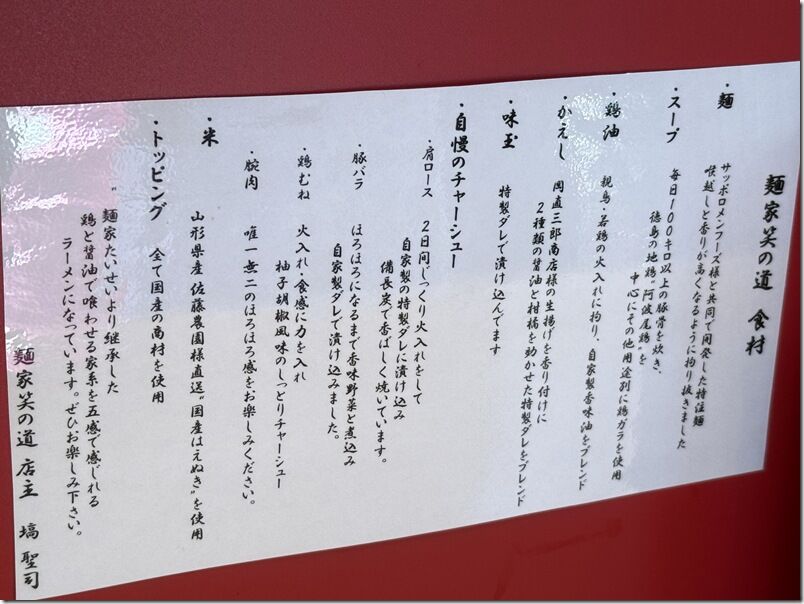 麵家笑の道 食材
・麺
サッポロメンフーズ様と共同で開発した特注麺
喉越しと香りが高くなるように拘り抜きました
・スープ
毎日100キロ以上の豚骨を炊き、
徳島の地鶏"阿波尾鶏"を
中心にその他用途別に鶏ガラを使用
・鶏油
親鳥・若鶏の火入れに拘り、自家製香味油をブレンド
・かえし
岡直三郎商店様の生揚げを香り付けに
2種類の醤油と柑橘を効かせた特製ダレをブレンド
・味玉
特製ダレで漬け込んでます
・自慢のチャーシュー
・肩ロース 2日間じっくり火入れをして
自家製の特製ダレに漬け込み
備長炭で香ばしく焼いています。
・豚バラ ほろほろになるまで香味野菜と煮込み
自家製ダレで漬け込みました。
・鶏むね 火入れ・食感に力を入れ
柚子胡椒風味のしっとりチャーシュー
・腕肉 唯一無二のほろほろ感をお楽しみください。
・米
山形県産佐藤農園様直送"国産はえぬき"を使用
・トッピング 全て国産の商材を使用
"麺家たいせいより継承した
鶏と醤油で喰わせる家系を五感で感じれる
ラーメンになっています。ぜひお楽しみ下さい。
麵家笑の道 店主 塙 聖司